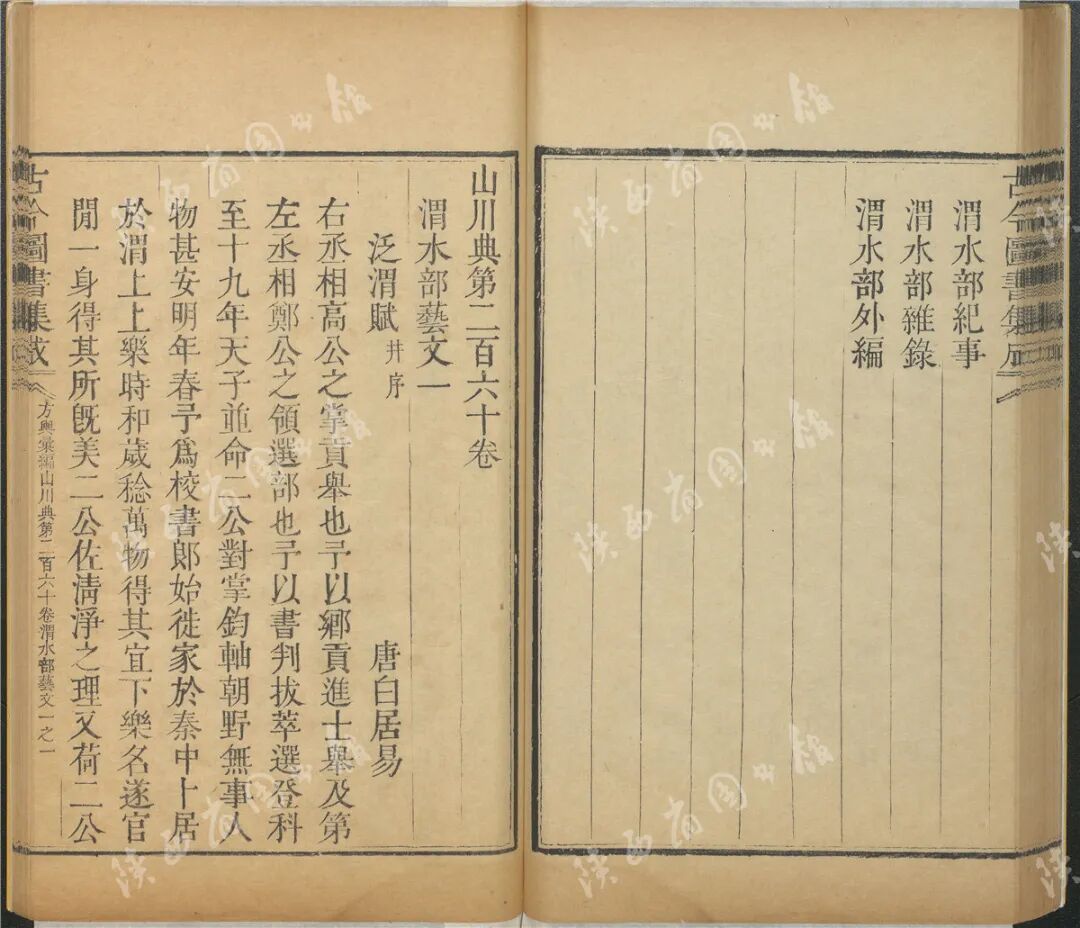 古今圖書集成
渭水部紀事
渭水部雜錄
渭水部外編
山川典第二百六十卷
渭水部藝文一
泛渭賦 并序 唐白居易
右丞相高公之掌貢舉也予以鄉貢進士舉及第
左丞相鄭公之領選部也予以書判拔萃選登科
至十九年天子並命二公對掌鈞軸朝野無事人
物甚安明年春予爲校書郎始徙家於秦中卜居
於渭上上樂時和歲稔萬物得其宜下樂名遂官
閒一身得其所旣美二公佐淸淨之理又荷二公
古今圖書集成
方輿彙編山川典第二百六十卷渭水部藝文一之一
陝西省圖書館